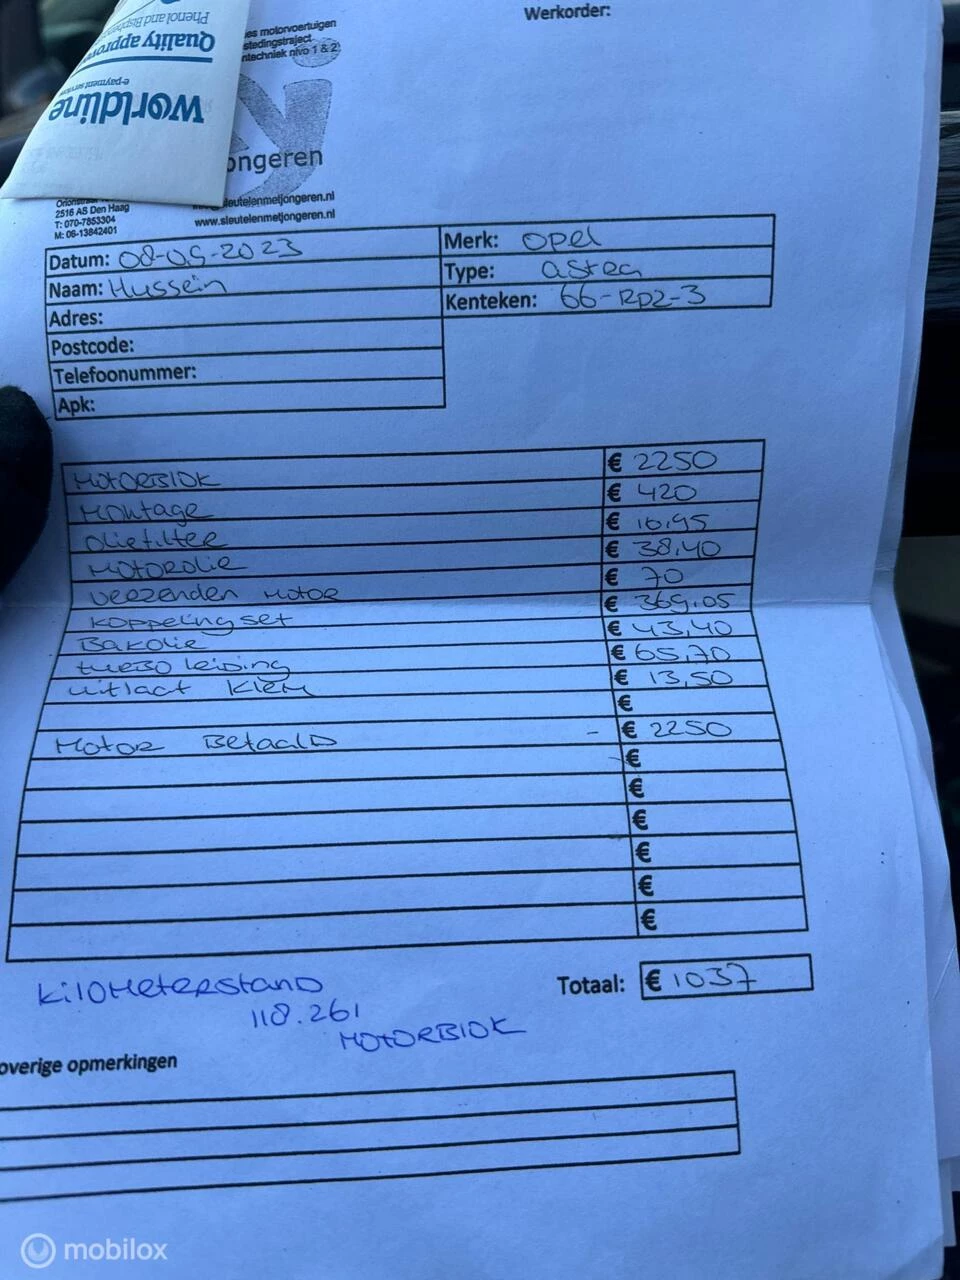 Werkorder:
es motorvoertuigen
stedingstraject
ntechniek nivo 1 & 2
Phenol and Bisphen
Quality approve
e-payment service
worldline
jongeren
2516 AS Den Haag
T: 070-7853304
M: 06-13842401
sleutelenmetjongeren.nl
www.sleutelenmetjongeren.nl
Datum: 08-09-2023
Naam: Hussein
Adres:
Postcode:
Telefoonnummer:
Apk:
Merk: Opel
Type: astra
Kenteken: 66-RDZ-3
MOTORBLOK € 2250
Montage € 420
oliefilter € 16,95
MOTOROLIE € 38,40
verzenden motor € 70
koppeling set € 369,05
Bakolie € 43,40
turbo leiding € 65,70
uitlaat klem € 13,50
€
Motor Betaald - € 2250
€
€
€
€
€
€
Totaal: € 1037
kilometerstand
118.261
MOTORBLOK
overige opmerkingen
mobilox